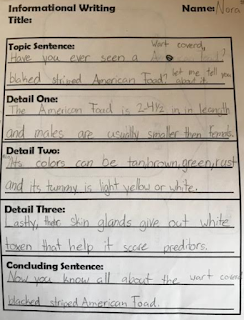 Informational Writing Name: Nora
Title:
Topic Sentence:
Have you ever seen a wart coverd,
blacked striped American Toad? let me tell you about it.
Detail One:
The American Toad is 2-4 1/2 in in leanth
and males are usually smaller then females.
Detail Two:
It's colors can be tan, brown, green, rust
and it's tummy is light yellow or white.
Detail Three:
Lastly, their skin glands give out white
toxen that help it scare preditors.
Concluding Sentence:
Now you know all about the wart coverd
blacked striped American Toad.